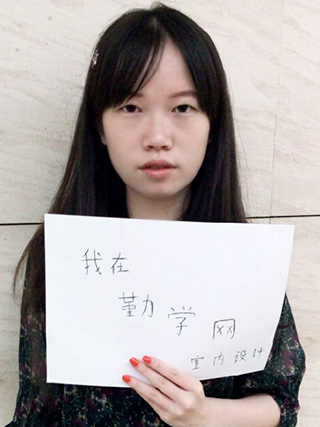 我在
勤学网
室内设计